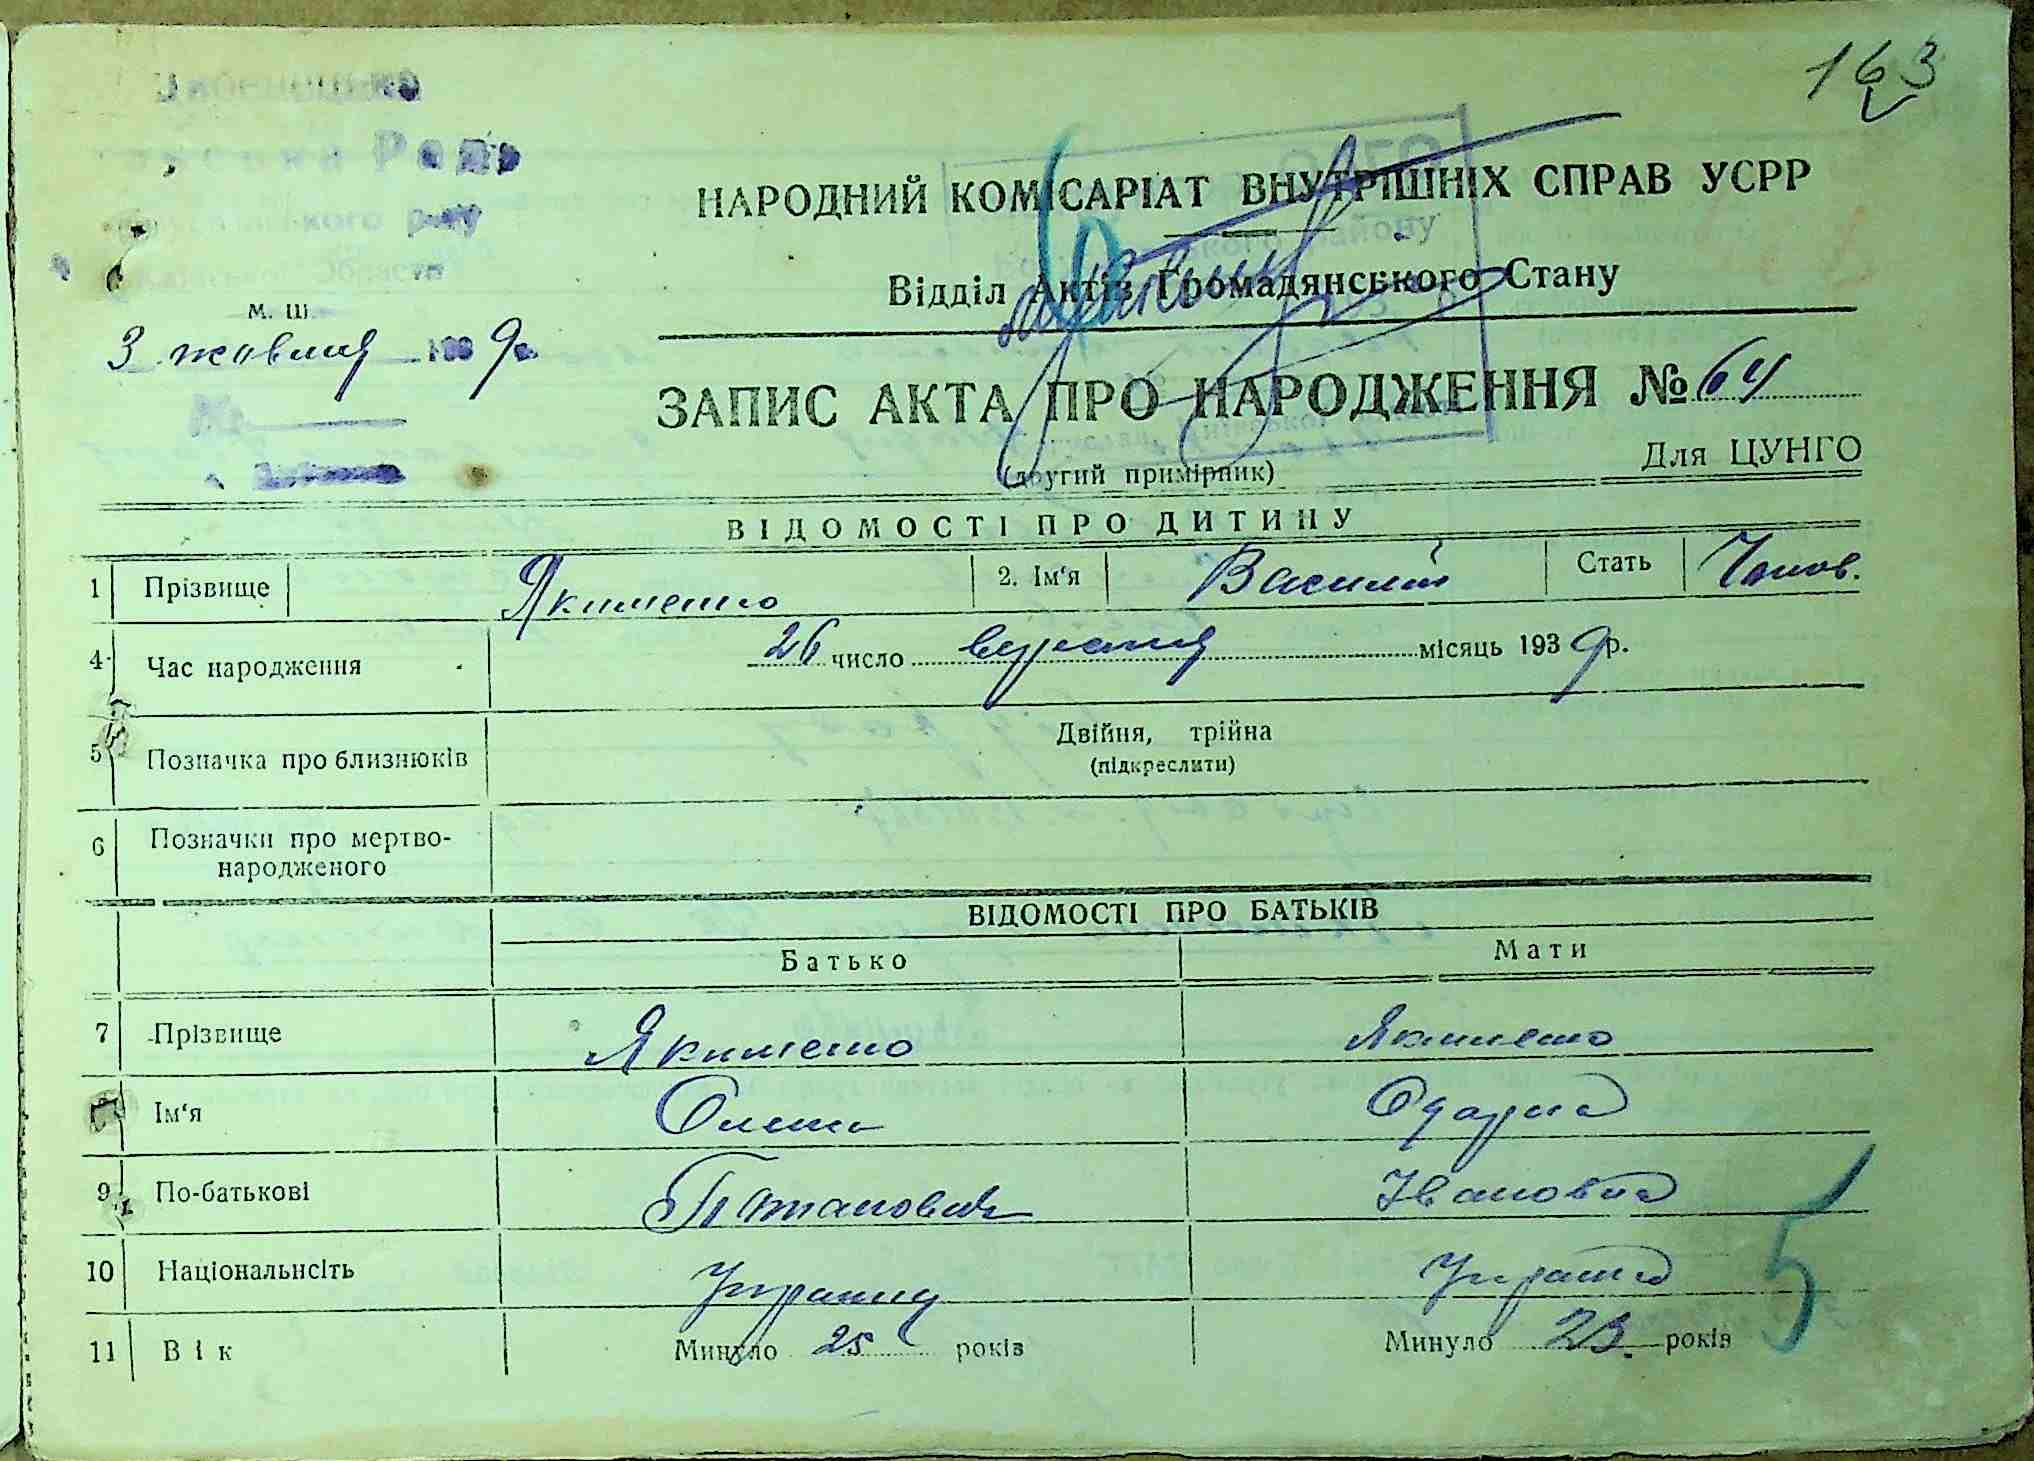 163
Рад
району
НАРОДНИЙ КОМІСАРІАТ ВНУТРІШНІХ СПРАВ УСРР
Відділ Актів Громадянського Стану
М. Ш.
3 жовтня 1939р.
ЗАПИС АКТА ПРО НАРОДЖЕННЯ № 64
(другий примірник)
Для ЦУНГО
ВІДОМОСТІ ПРО ДИТИНУ
1 Прізвище Якименко 2. Ім'я Василій Стать Чолов.
4 Час народження 26 число вересня місяць 1939р.
5 Позначка про близнюків Двійня, трійна
(підкреслити)
6 Позначки про мертво-
народженого
ВІДОМОСТІ ПРО БАТЬКІВ
Батько Мати
7 Прізвище Якименко Якименко
Ім'я Олекса Одарка
9 По-батькові Потапович Івановна
10 Національнсіть Українец Українка
11 Вік Минуло 25 років Минуло 23 років
5